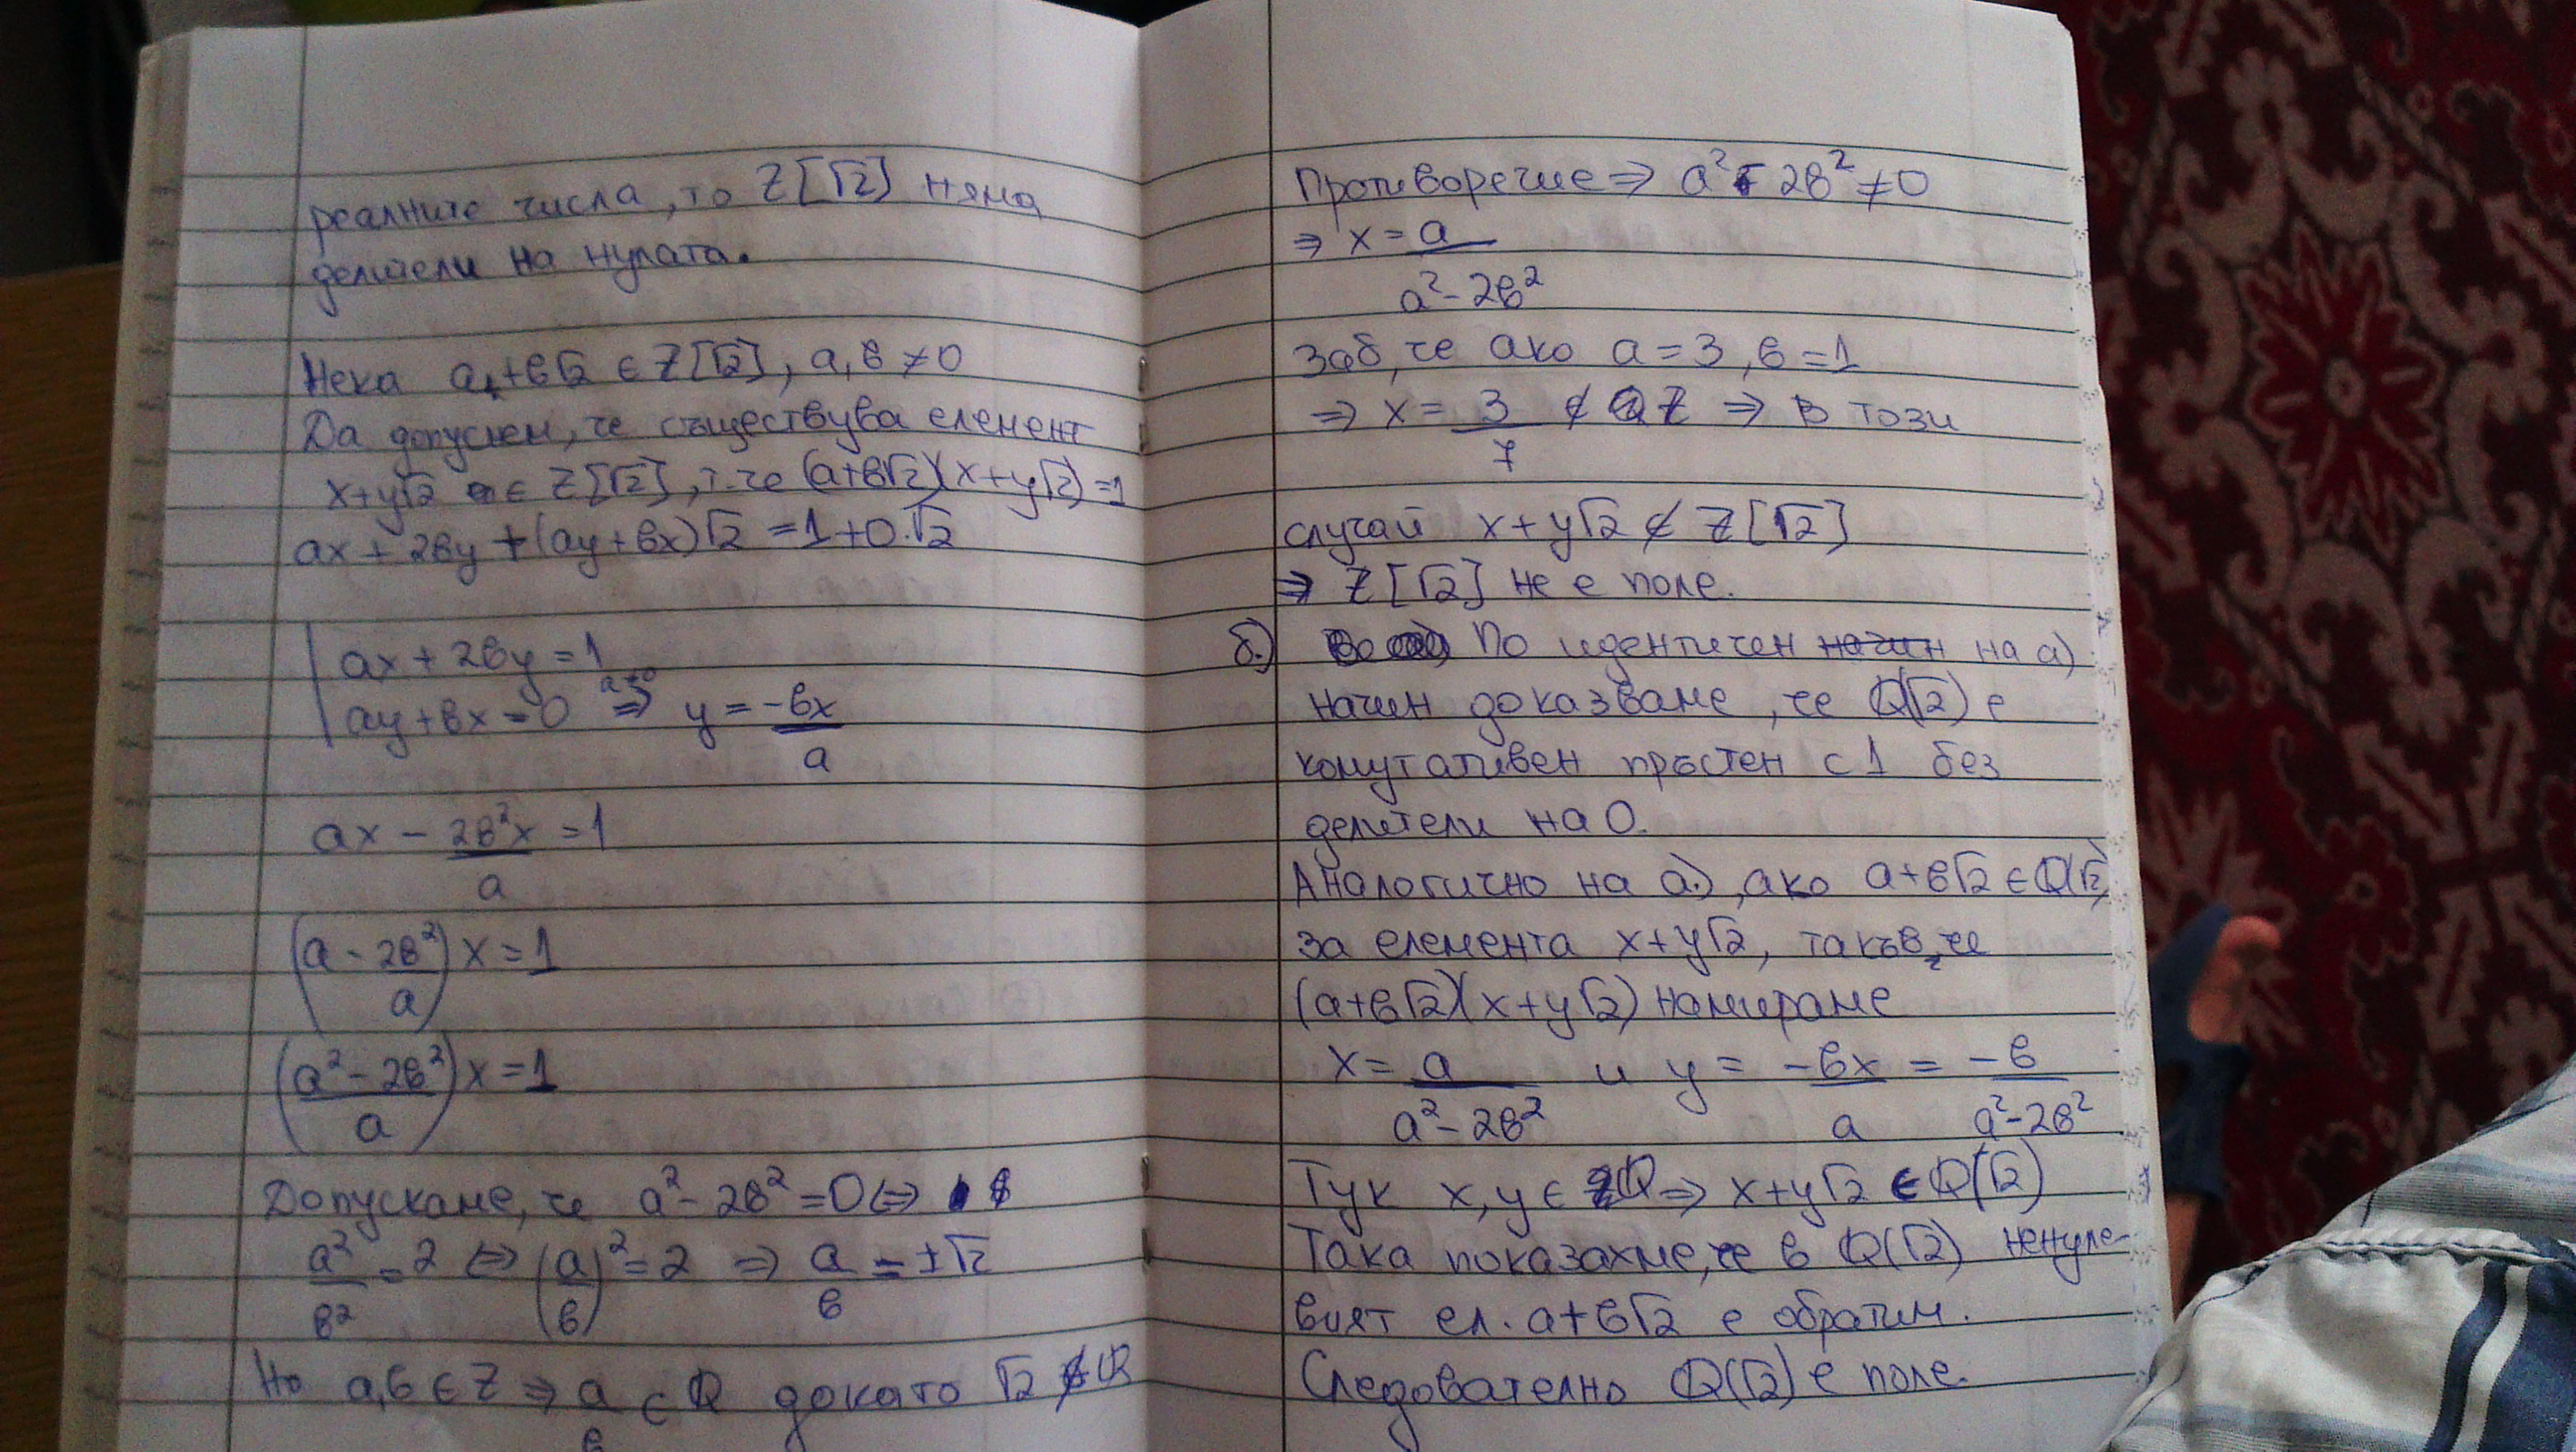 реалните числа, то Z[√2] няма
делители на нулата.
Нека a+b√2 ∈ Z[√2], a,b ≠ 0
Да допуснем, че съществува елемент
x+y√2 ∈ Z[√2], т.че (a+b√2)(x+y√2)=1
ax + 2by + (ay+bx)√2 = 1+0.√2
ax + 2by = 1
ay + bx = 0 a≠0 ⇒ y = -bx/a
ax - 2b²x/a = 1
(a - 2b²/a) x = 1
((a² - 2b²)/a) x = 1
Допускаме, че a² - 2b² = 0 ⇔
a²/b² = 2 ⇔ (a/b)² = 2 ⇒ a/b = ±√2
Но a,b ∈ Z ⇒ a/b ∈ Q докато √2 ∉ Q
Противоречие ⇒ a² - 2b² ≠ 0
⇒ x = a/(a² - 2b²)
Заб, че ако a = 3, b = 1
⇒ x = 3/7 ∉ Z ⇒ в този
случай x+y√2 ∉ Z[√2]
⇒ Z[√2] не е поле.
б.) По идентичен на а)
начин доказваме, че Q(√2) е
комутативен пръстен с 1 без
делители на 0.
Аналогично на а.), ако a+b√2 ∈ Q(√2)
за елемента x+y√2, такъв, че
(a+b√2)(x+y√2) намираме
x = a/(a² - 2b²) и y = -bx/a = -b/(a² - 2b²)
Тук x,y ∈ Q ⇒ x+y√2 ∈ Q(√2)
Така показахме, че в Q(√2) ненуле-
вият ел. a+b√2 е обратим.
Следователно Q(√2) е поле.